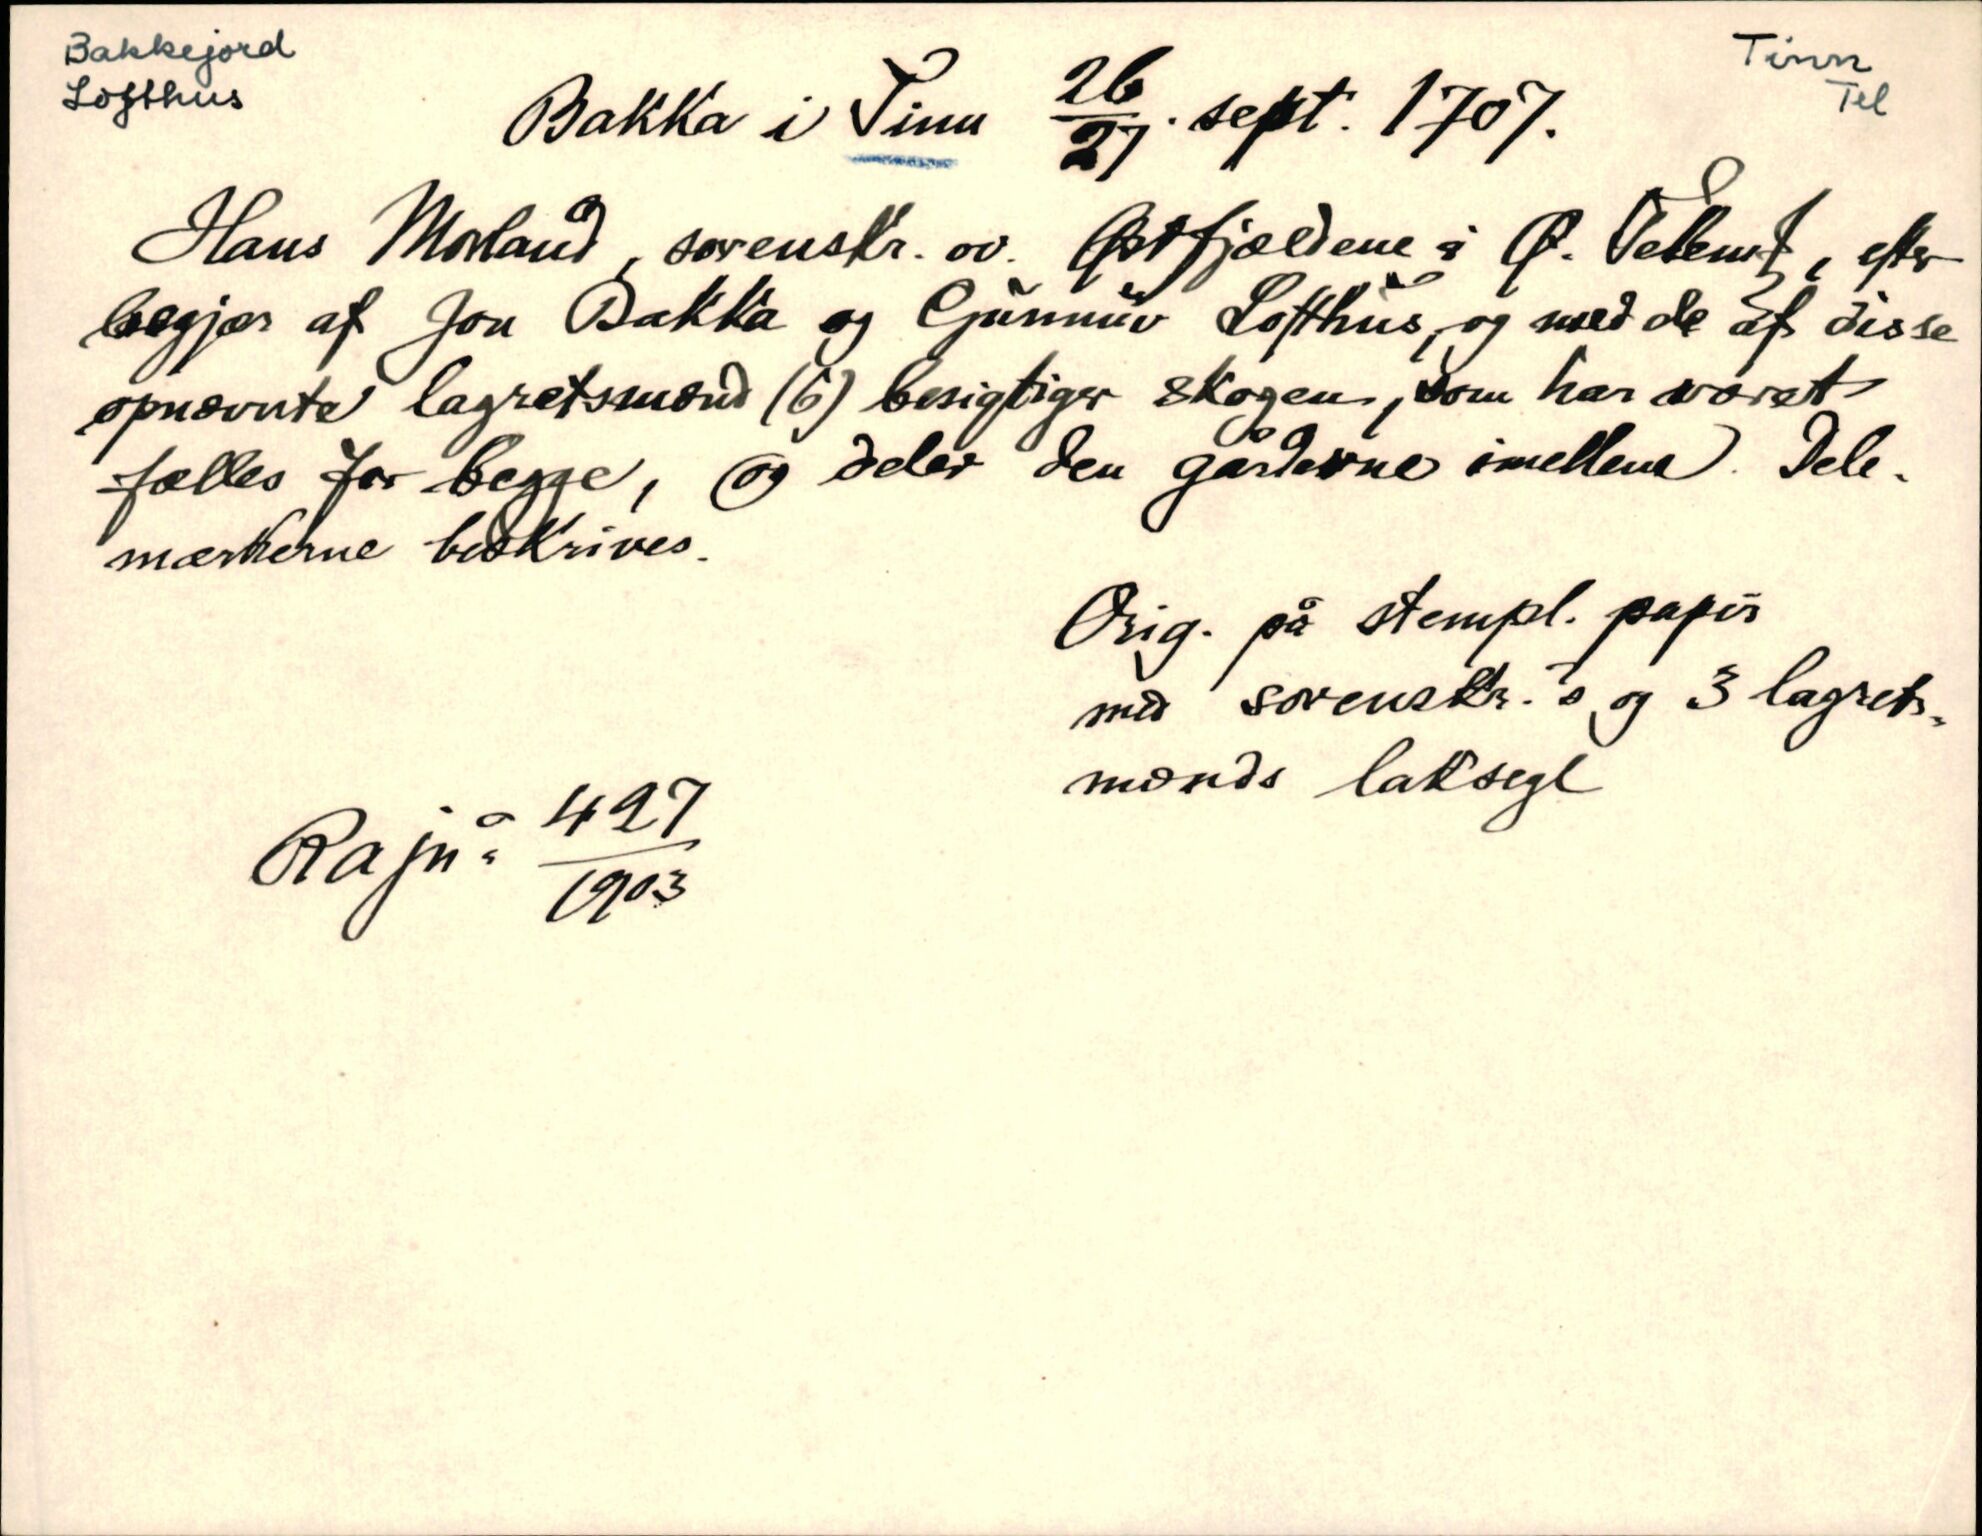 Bakkejord
Lofthus
Tinn
Tel
Bakka i Tinn 26/27. sept. 1707.
Hans Morland, sorenskr. ov. Østfjældene i Ø. Telem., efter
begjær af Jon Bakka og Gunnuv Lofthus, og med de af disse
opnævnte lagretsmænd (6) besigtiger skogen, som har været
fælles for begge, og deler den gårderne imellem. Dele-
mærkerne beskrives.
Orig. på stempl. papir
med sorenskr.'s og 3 lagrets-
mænds laksegl
Ra jnº. 427/1903